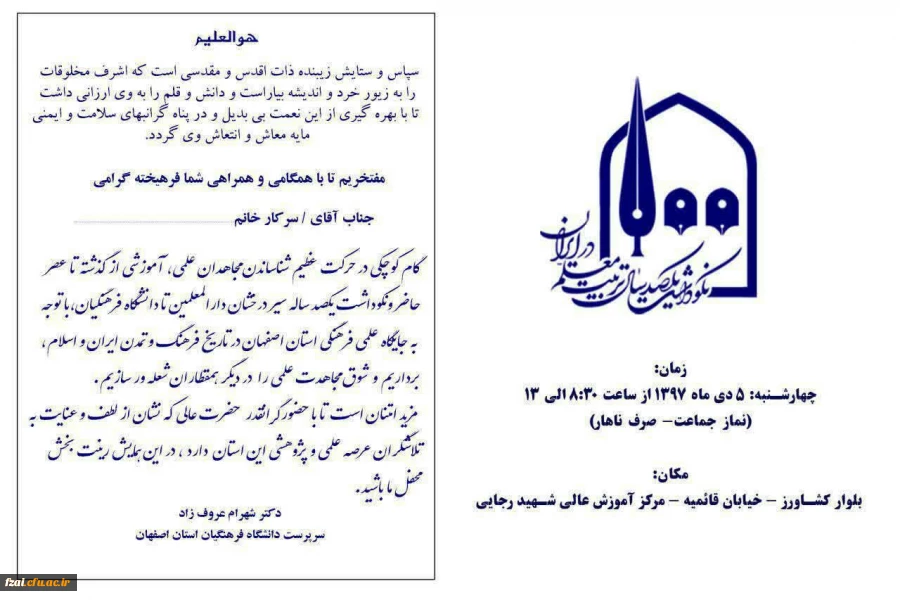 هوالعلیم
سپاس و ستایش زیبنده ذات اقدس و مقدسی است که اشرف مخلوقات
را به زیور خرد و اندیشه بیاراست و دانش و قلم را به وی ارزانی داشت
تا با بهره گیری از این نعمت بی بدیل و در پناه گرانبهای سلامت و ایمنی
مایه معاش و انتعاش وی گردد.
مفتخریم تا با همگامی و همراهی شما فرهیخته گرامی
جناب آقای / سرکار خانم
گام کوچکی در حرکت عظیم شناساندن مجاهدان علمی، آموزشی از گذشته تا عصر
حاضر و نکوداشت یکصد ساله سیر درخشان دارالمعلمین تا دانشگاه فرهنگیان، با توجه
به جایگاه علمی فرهنگی استان اصفهان در تاریخ فرهنگ و تمدن ایران و اسلام ،
برداریم و شوق مجاهدت علمی را در دیگر همقطاران شعله ور سازیم .
مزید امتنان است تا با حضور گرانقدر حضرت عالی که نشان از لطف و عنایت به
تلاشگران عرصه علمی و پژوهشی این استان دارد ، در این همایش زینت بخش
محفل ما باشید.
دکتر شهرام عروف زاد
سرپرست دانشگاه فرهنگیان استان اصفهان
۱۰۰
نکوداشت یکصد سال تربیت معلم
در ایران
زمان:
چهارشـنبه: ۵ دی ماه ۱۳۹۷ از ساعت ۸:۳۰ الی ۱۳
(نماز جماعت- صرف ناهار)
مکان:
بلوار کشـاورز - خیابان قائمیه - مرکز آموزش عالی شـهید رجایی
fzal.cfu.ac.ir